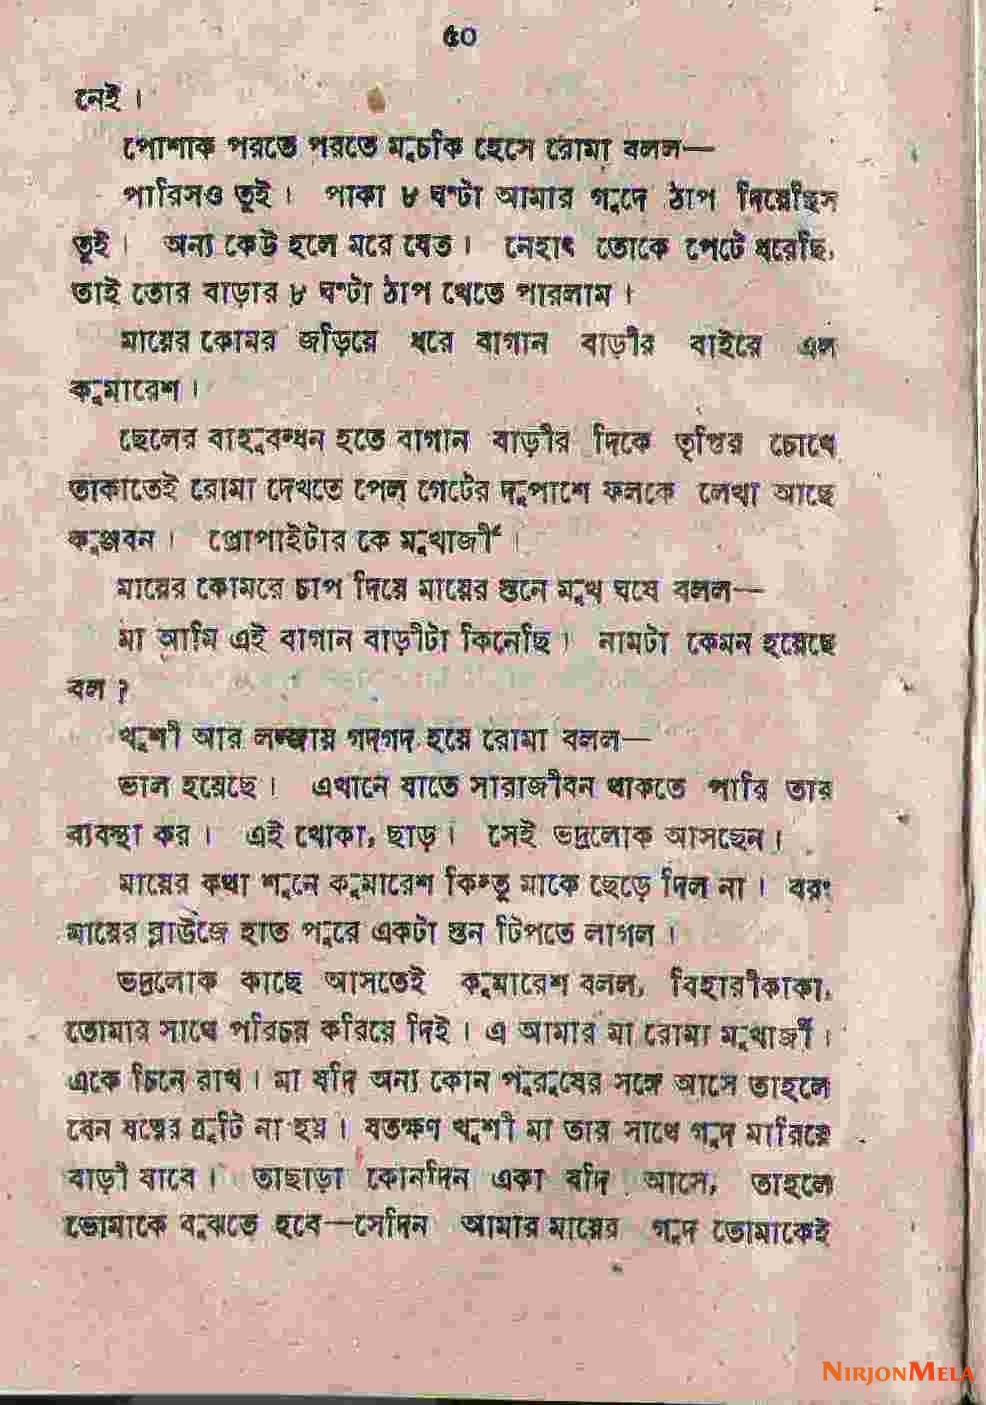 ৫০
নেই ।
পোশাক পরতে পরতে মুচকি হেসে রোমা বলল—
পারিসও তুই । পাকা ৮ ঘণ্টা আমার গুদে ঠাপ দিয়েছিস
তুই । অন্য কেউ হলে মরে যেত । নেহাৎ তোকে পেটে ধরেছি,
তাই তোর বাড়ার ৮ ঘণ্টা ঠাপ খেতে পারলাম ।
মায়ের কোমর জড়িয়ে ধরে বাগান বাড়ীর বাইরে এল
কুমারেশ ।
ছেলের বাহুবন্ধন হতে বাগান বাড়ীর দিকে তৃপ্তির চোখে
তাকাতেই রোমা দেখতে পেল গেটের দুপাশে ফলকে লেখা আছে
কুঞ্জবন । প্রোপাইটার কে মুখার্জী ।
মায়ের কোমরে চাপ দিয়ে মায়ের স্তনে মুখ ঘষে বলল—
মা আমি এই বাগান বাড়ীটা কিনেছি । নামটা কেমন হয়েছে
বল ?
খুশী আর লজ্জায় গদগদ হয়ে রোমা বলল—
ভাল হয়েছে । এখানে যাতে সারাজীবন থাকতে পারি তার
ব্যবস্থা কর । এই খোকা, ছাড় । সেই ভদ্রলোক আসছেন ।
মায়ের কথা শুনে কুমারেশ কিন্তু মাকে ছেড়ে দিল না । বরং
মায়ের ব্লাউজে হাত পুরে একটা স্তন টিপতে লাগল ।
ভদ্রলোক কাছে আসতেই কুমারেশ বলল, বিহারীকাকা,
তোমার সাথে পরিচয় করিয়ে দিই । এ আমার মা রোমা মুখার্জী ।
একে চিনে রাখ । মা যদি অন্য কোন পুরুষের সঙ্গে আসে তাহলে
যেন যত্নের ত্রুটি না হয় । যতক্ষণ খুশী মা তার সাথে গুদ মারিয়ে
বাড়ী যাবে । তাছাড়া কোনদিন একা যদি আসে, তাহলে
তোমাকে বুঝতে হবে—সেদিন আমার মায়ের গুদ তোমাকেই
NIRJONMELA